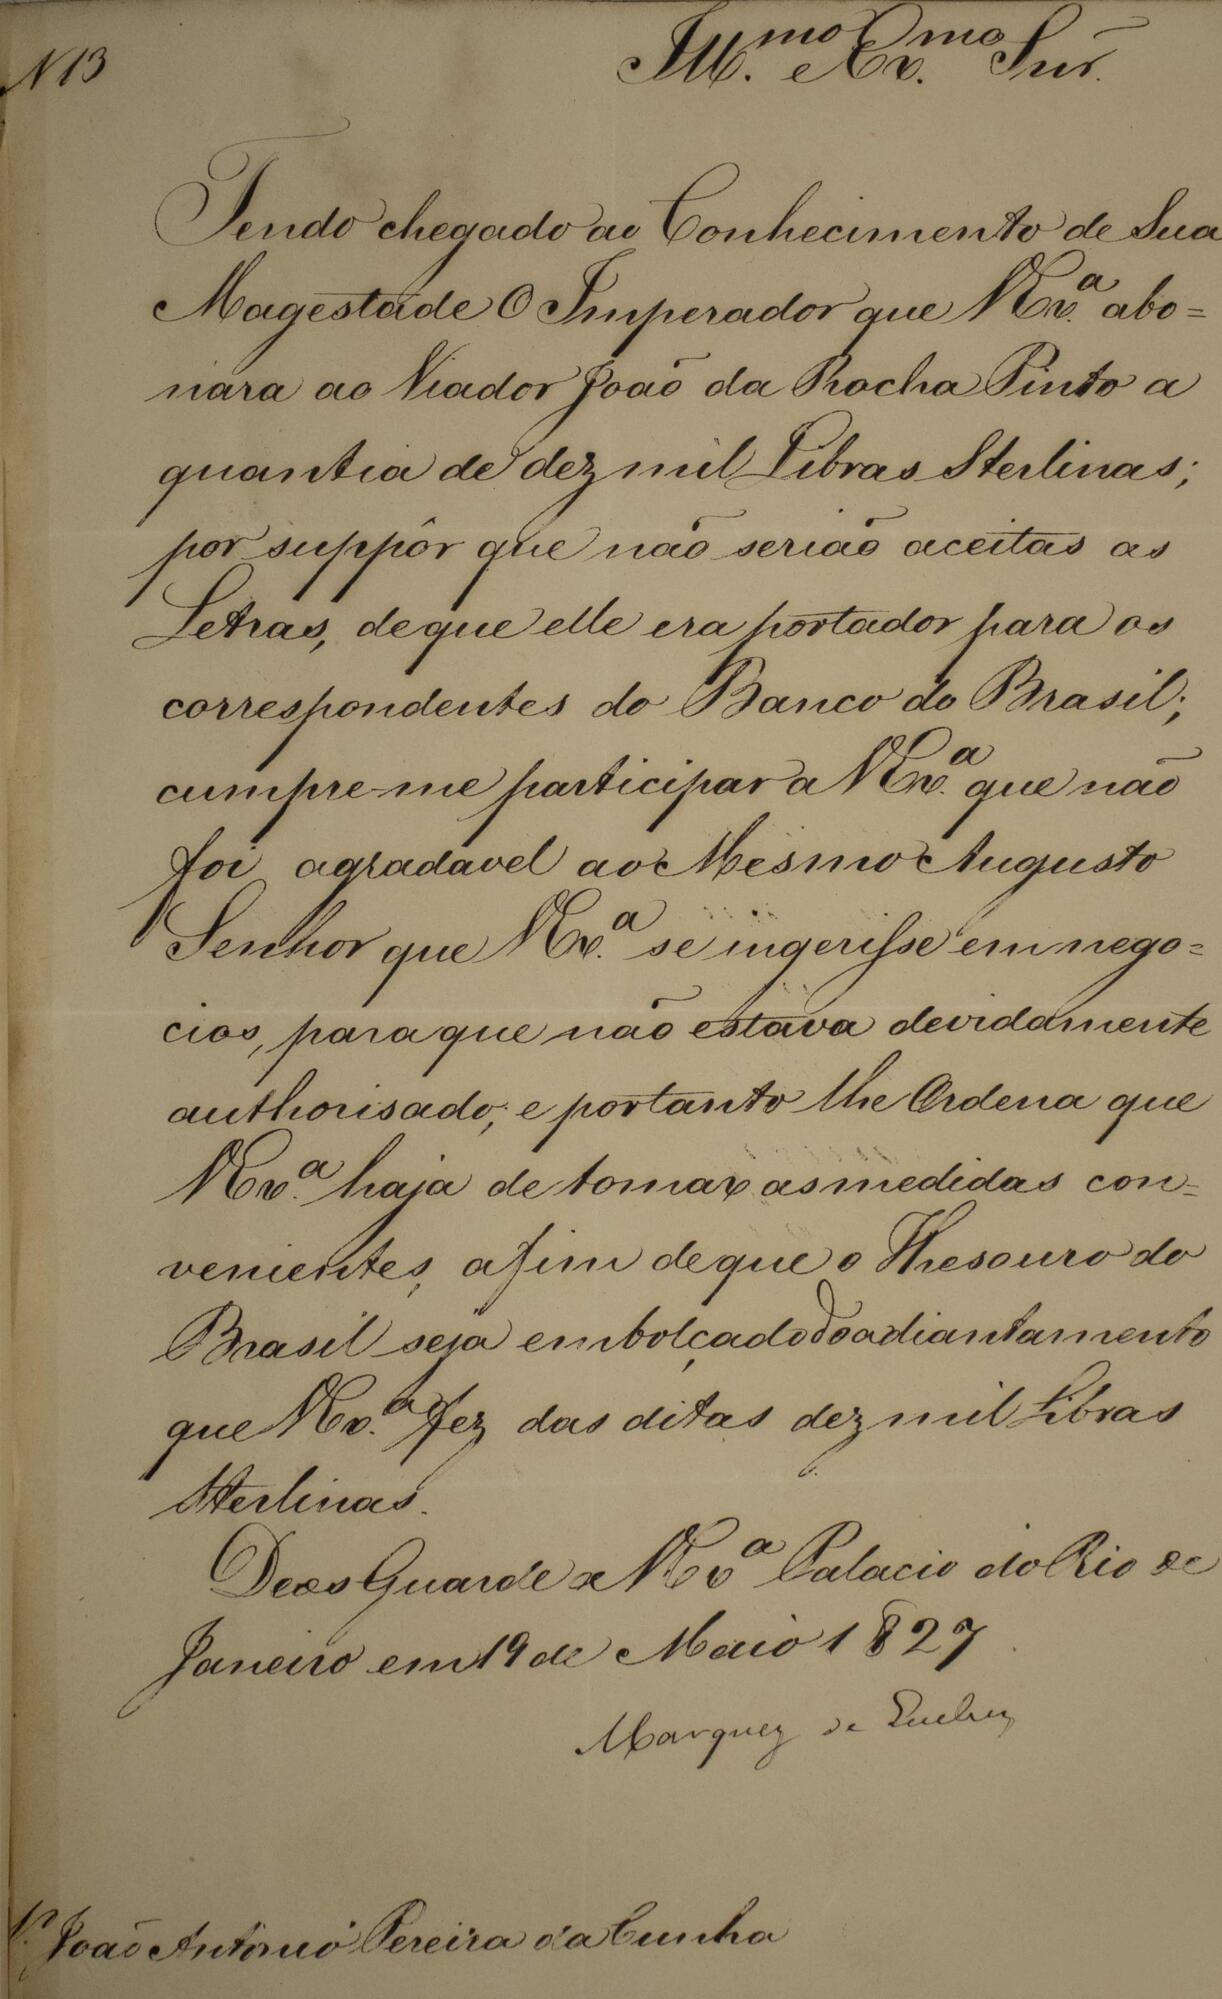 N 13
Ill.mo e Ex.mo Snr.
Tendo chegado ao Conhecimento de Sua
Magestade O Imperador que V Ex.a abo=
nara ao Viador João da Rocha Pinto a
quantia de dez mil Libras Sterlinas;
por suppôr que não serião aceitas as
Letras, de que elle era portador para os
correspondentes do Banco do Brasil;
cumpre-me participar a V Ex.a que não
foi agradavel ao Mesmo Augusto
Senhor que V Ex.a se ingerisse em nego=
cios, para que não estava devidamente
authorisado; e portanto lhe Ordena que
V Ex.a haja de tomar as medidas con=
venientes, afim de que o Thesouro do
Brasil seja embolçado do adiantamento
que V Ex.a fez das ditas dez mil Libras
Sterlinas.
Deos Guarde a V Ex.a Palacio do Rio de
Janeiro em 19 de Maio 1827
Marquez de Queluz
Sr. João Antonio Pereira da Cunha